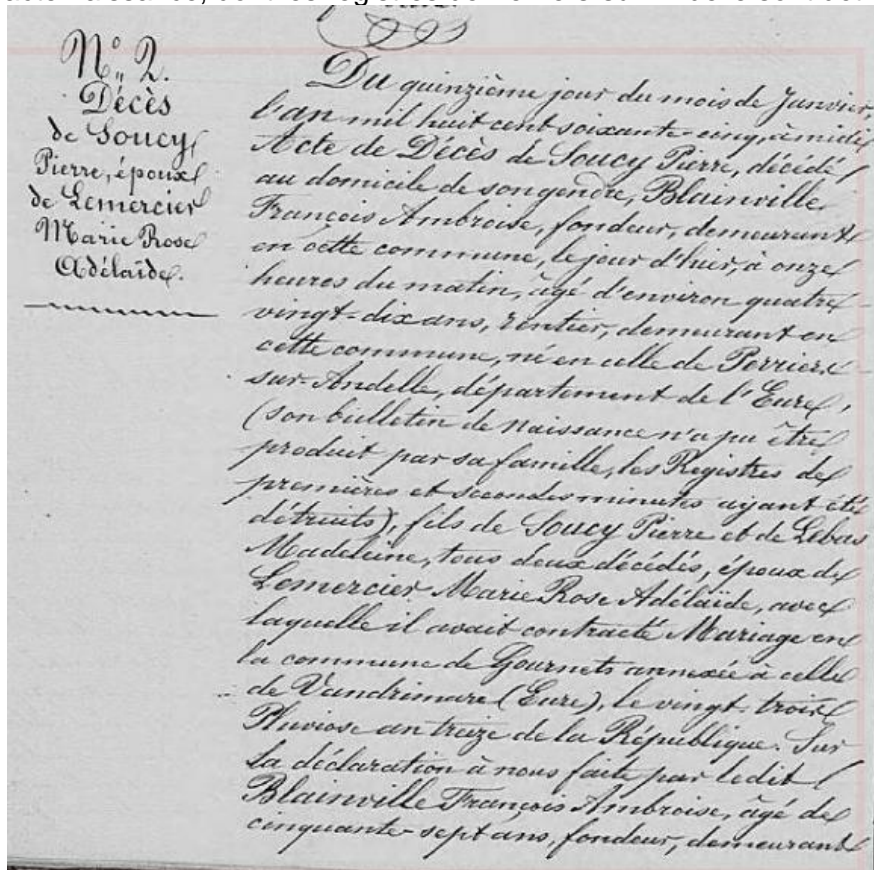 N° 2.
Décès
de Soucy
Pierre, époux
de Lemercier
Marie Rose
Adélaïde.
Du quinzième jour du mois de Janvier,
l'an mil huit cent soixante-cinq, à midi
Acte de Décès de Soucy Pierre, décédé
au domicile de son gendre, Blainville
François Ambroise, fondeur, demeurant
en cette commune, le jour d'hier, à onze
heures du matin, âgé d'environ quatre-
vingt-dix ans, rentier, demeurant en
cette commune, né en celle de Perriers-
sur-Andelle, département de l'Eure,
(son bulletin de naissance n'a pu être
produit par sa famille, les Registres de
premières et secondes minutes ayant été
détruits), fils de Soucy Pierre et de Lebas
Madeleine, tous deux décédés, époux de
Lemercier Marie Rose Adélaïde, avec
laquelle il avait contracté Mariage en
la commune de Gournets annexée à celle
de Vandrimare (Eure), le vingt-trois
Pluviose an treize de la République. Sur
la déclaration à nous faite par ledit
Blainville François Ambroise, âgé de
cinquante-sept ans, fondeur, demeurant